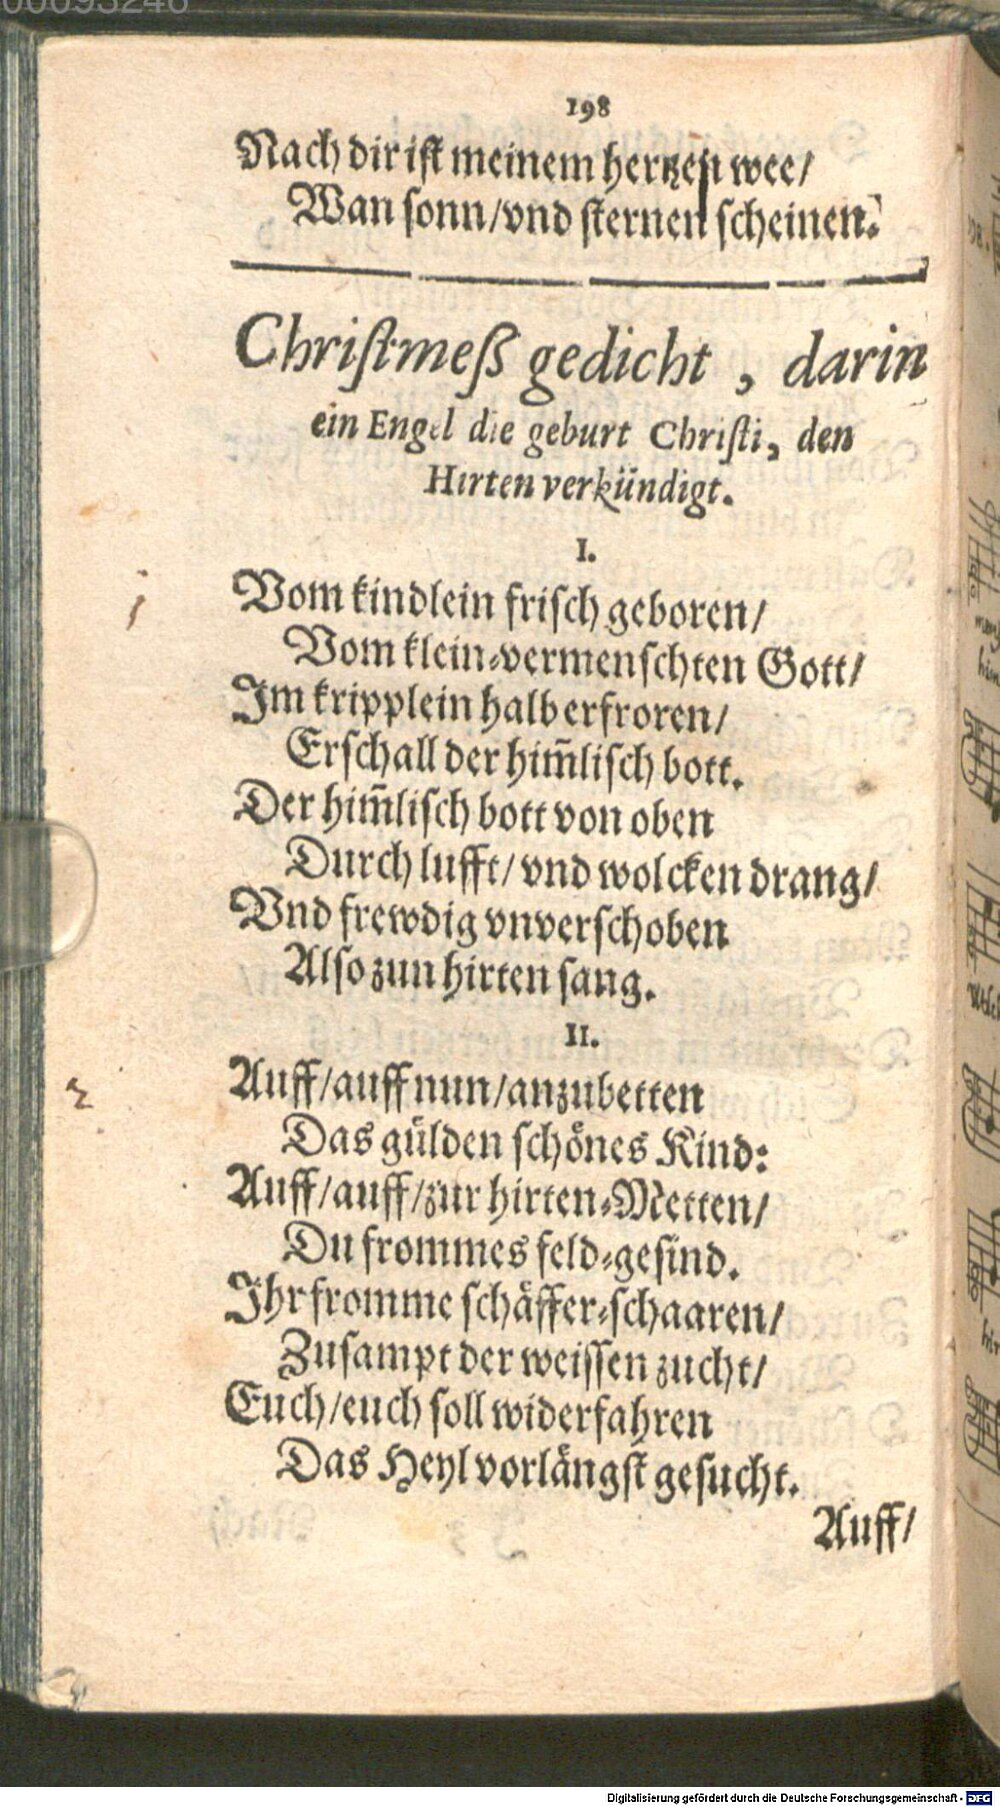 00095246
198
Nach dir ist meinem hertzen wee/
Wan sonn/vnd sternen scheinen.
Christmeß gedicht, darin
ein Engel die geburt Christi, den
Hirten verkündigt.
I.
Vom kindlein frisch geboren/
Vom klein-vermenschten Gott/
Im kripplein halb erfroren/
Erschall der him̃lisch bott.
Der him̃lisch bott von oben
Durch lufft/vnd wolcken drang/
Vnd frewdig vnverschoben
Also zun hirten sang.
II.
Auff/auff nun/anzubetten
Das gülden schönes Kind:
Auff/auff/zur hirten-Metten/
Du frommes feld-gesind.
Ihr fromme schäffer-schaaren/
Zusampt der weissen zucht/
Euch/euch soll widerfahren
Das Heyl vorlängst gesucht.
Auff/
Digitalisierung gefördert durch die Deutsche Forschungsgemeinschaft - DFG